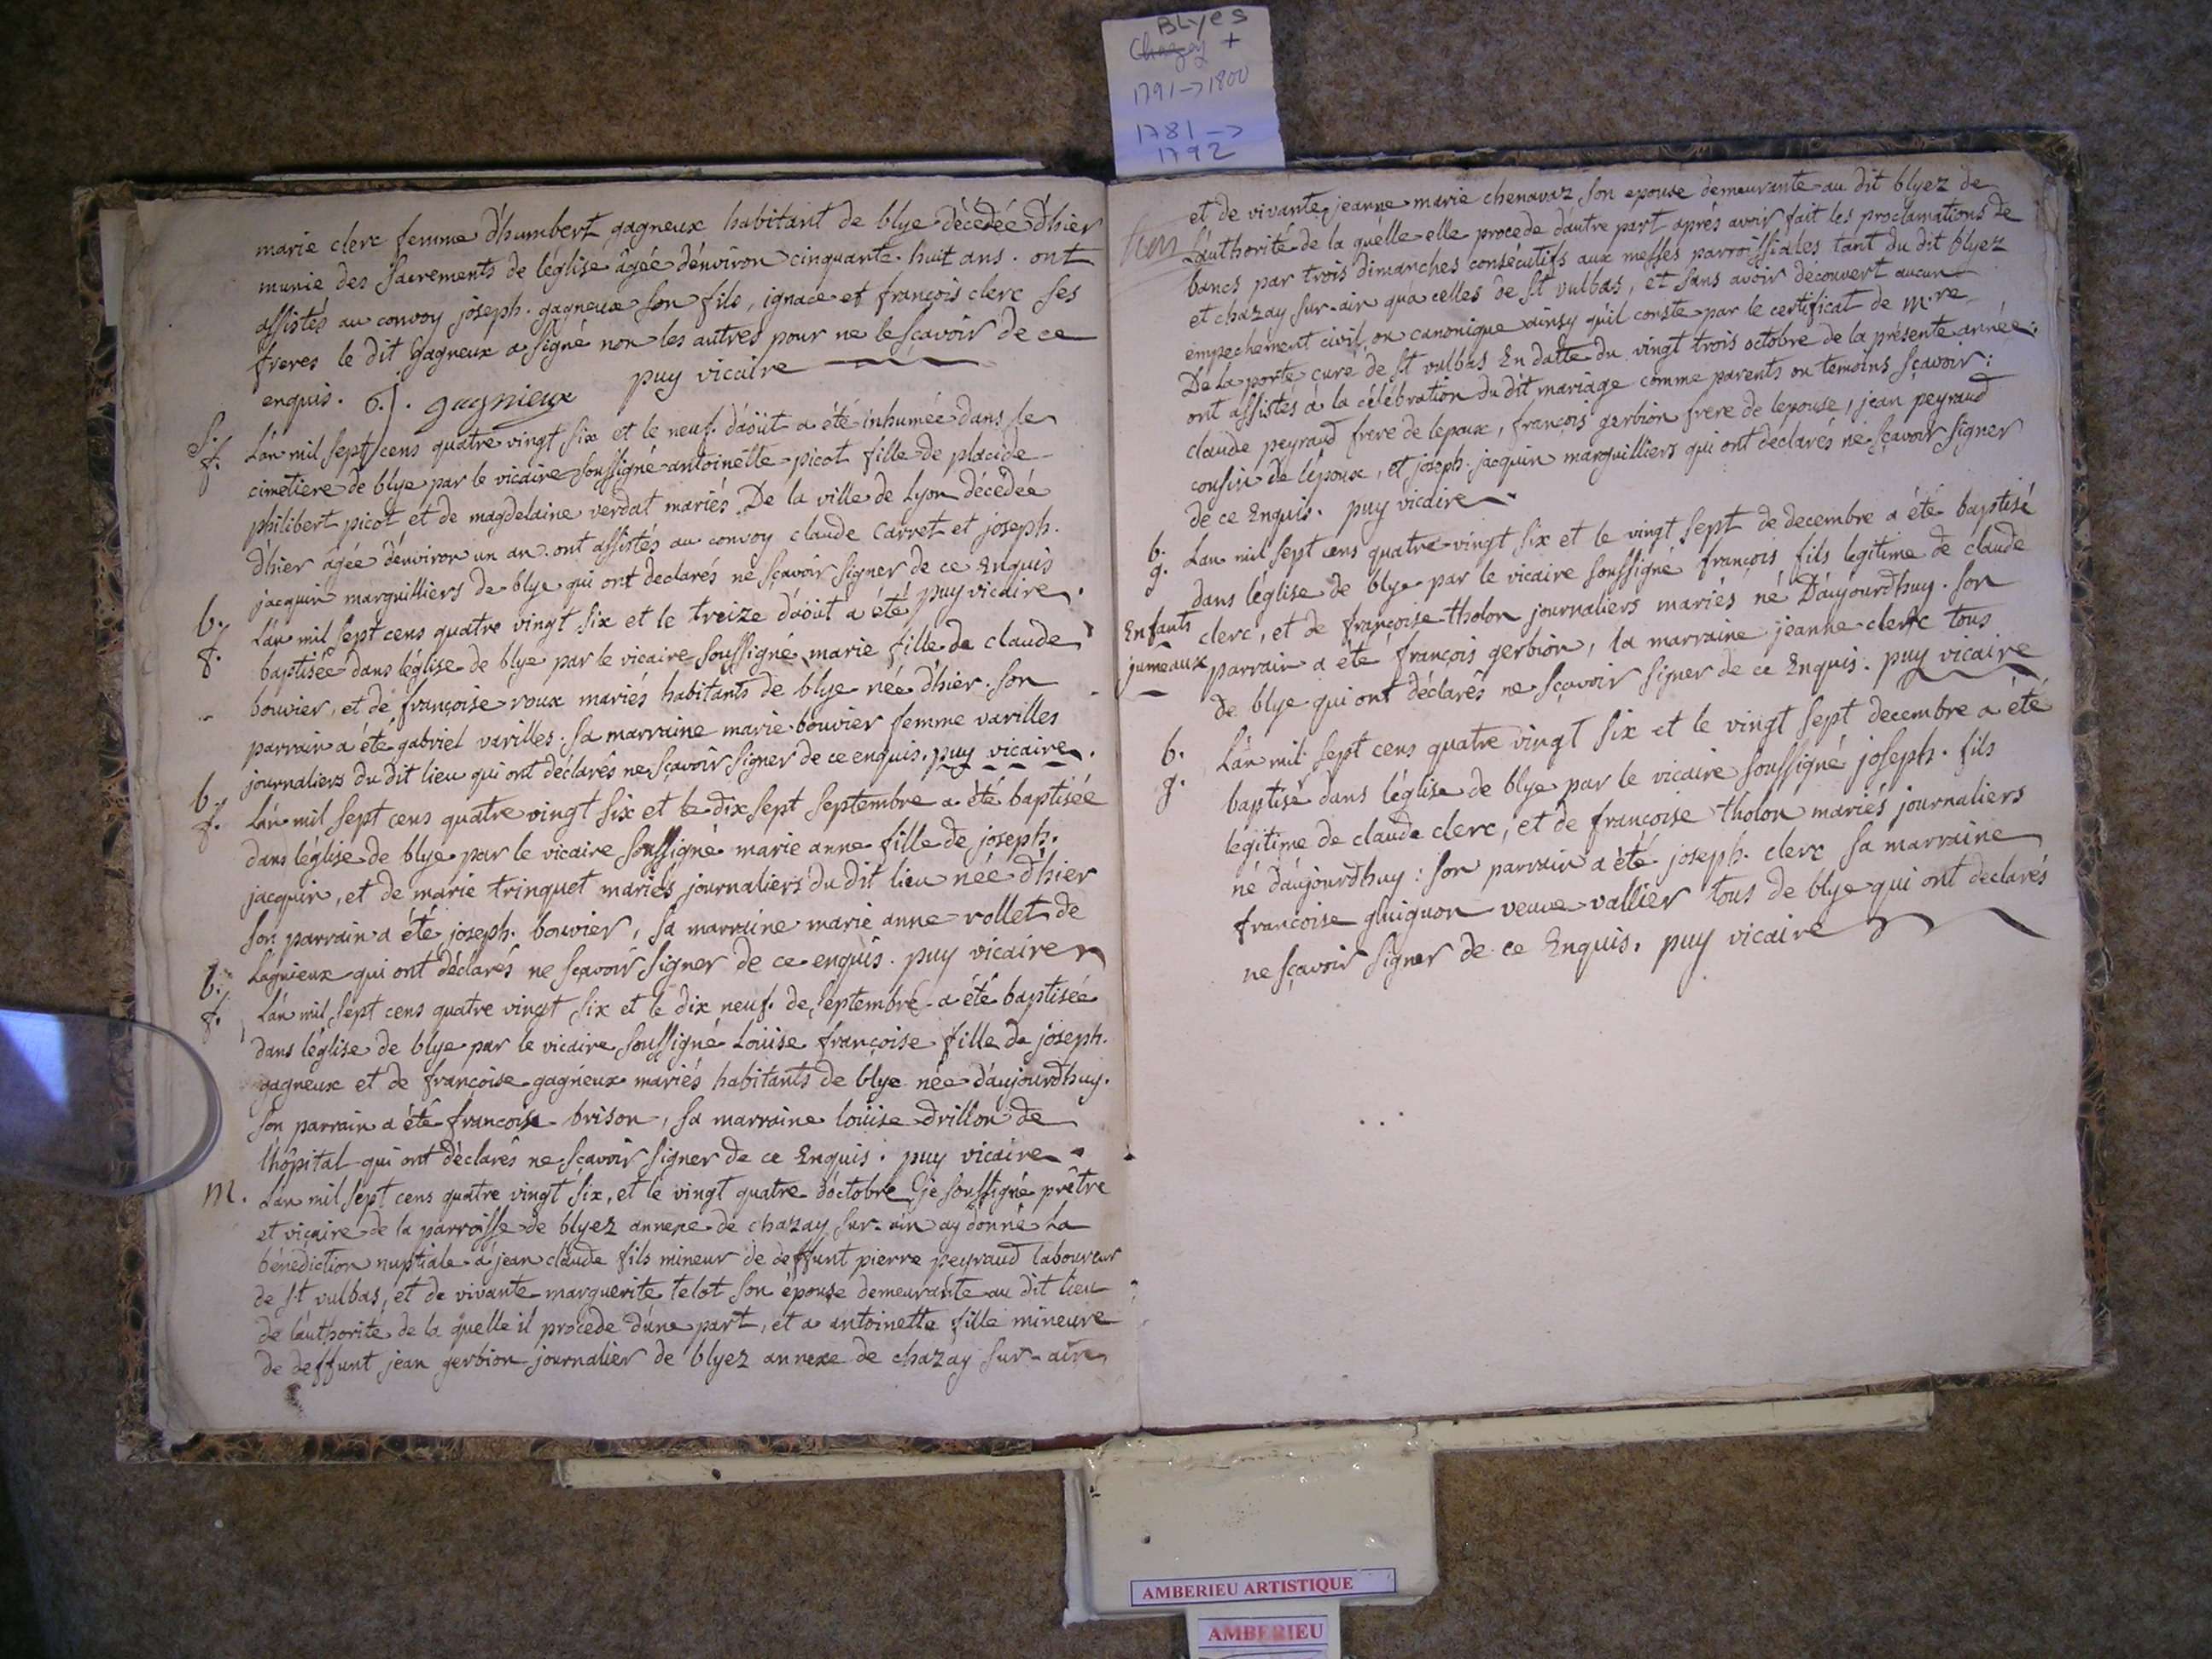 BLyes
Chazey +
1791 -> 1800
1781 ->
1792
marie clerc femme d'humbert gagneux habitant de blye décédée d'hier
munie des sacrements de léglise âgée dénviron cinquante-huit ans. ont
assistés au convoy joseph. gagneux son fils, ignace et françois clerc ses
freres le dit Gagneux a signé non les autres pour ne le sçavoir de ce
enquis. gagnieux puy vicaire
S.
f.
Lán mil sept cens quatre vingt six et le neuf. dáoüt a été inhumée dans le
cimetiere de blye par le vicaire soussigné antoinette picot fille de placide
philibert picot et de magdelaine verdat mariés. De la ville de Lyon décédée
d'hier âgée dénviron un an. ont assistés au convoy claude Carret et joseph.
jacquin marguilliers de blye qui ont declarés ne sçavoir signer de ce Enquis
puy vicaire.
b.
f.
Lán mil sept cens quatre vingt six et le treize dáoüt a été
baptisée dans léglise de blye par le vicaire soussigné marie fille de claude
bouvier, et de françoise roux mariés habitants de blye née d'hier. son
parrain a été gabriel varilles. sa marraine marie bouvier femme varilles
journaliers du dit lieu qui ont déclarés ne sçavoir signer de ce enquis. puy vicaire.
b.
f.
Lán mil sept cens quatre vingt six et le dix sept septembre a été baptisée
dans léglise de blye par le vicaire soussigné marie anne fille de joseph.
jacquin, et de marie trinquet mariés journaliers du dit lieu née d'hier
son parrain a été joseph. bouvier, sa marraine marie anne rollet de
Lagnieux qui ont déclarés ne sçavoir signer de ce enquis. puy vicaire
b.
f.
Lán mil sept cens quatre vingt six et le dix neuf. de septembre a été baptisée
dans léglise de blye par le vicaire soussigné Loüise françoise fille de joseph.
gagneux et de françoise gagneux mariés habitants de blye née dáujourdhuy.
son parrain a été françois brison, sa marraine loüise drillon de
lhôpital qui ont déclarés ne sçavoir signer de ce Enquis. puy vicaire
m.
Lan mil sept cens quatre vingt six, et le vingt quatre dóctobre je soussigné prêtre
et vicaire de la parroisse de blyez annexe de chazay sur-ain ay donné La
bénédiction nuptiale a jean claude fils mineur de deffunt pierre peyraud laboureur
de st vulbas, et de vivante marguerite telot son épouse demeurante au dit lieu
de láuthorité de la quélle il procéde dúne part, et a antoinette fille mineure
de deffunt jean gerbion journalier de blyez annexe de chazay sur-ain
et de vivante jeanne marie chenavaz son epouse demeurante au dit blyez de
Láuthorité de la quélle elle procede dáutre part aprés avoir fait les proclamations de
bancs par trois dimanches consécutifs aux messes parroissiales tant du dit blyez
et chazay sur-ain quá celles de st vulbas, et sans avoir découvert aucun
empechement civil, ou canonique ainsy quíl conste par le certificat de m.re
De La porte curé de st vulbas En datte du vingt trois octobre de la présente année.
ont assistés a la célébration du dit mariage comme parents ou temoins sçavoir:
claude peyraud frere de lepoux, françois gerbion frere de lepouse, jean peyraud
cousin de lépoux, et joseph. jacquin marguilliers qui ont declarés ne sçavoir signer
de ce Enquis. puy vicaire
b.
g.
Enfants
jumeaux
Lan mil sept cens quatre vingt six et le vingt sept de decembre a été baptisé
dans léglise de blye par le vicaire soussigné françois fils legitime de claude
clerc, et de françoise tholon journaliers mariés né Dáujourdhuy. son
parrain a été françois gerbion, la marraine jeanne clerc tous
de blye qui ont déclarés ne sçavoir signer de ce Enquis. puy vicaire
b.
g.
Lán mil sept cens quatre vingt six et le vingt sept decembre a été
baptisé dans léglise de blye par le vicaire soussigné joseph. fils
légitime de claude clerc, et de françoise tholon mariés journaliers
né dáujourdhuy: son parrain a été joseph. clerc sa marraine
françoise gluignon veuve vallier tous de blye qui ont declarés
ne sçavoir signer de ce Enquis. puy vicaire
AMBERIEU ARTISTIQUE
AMBERIEU